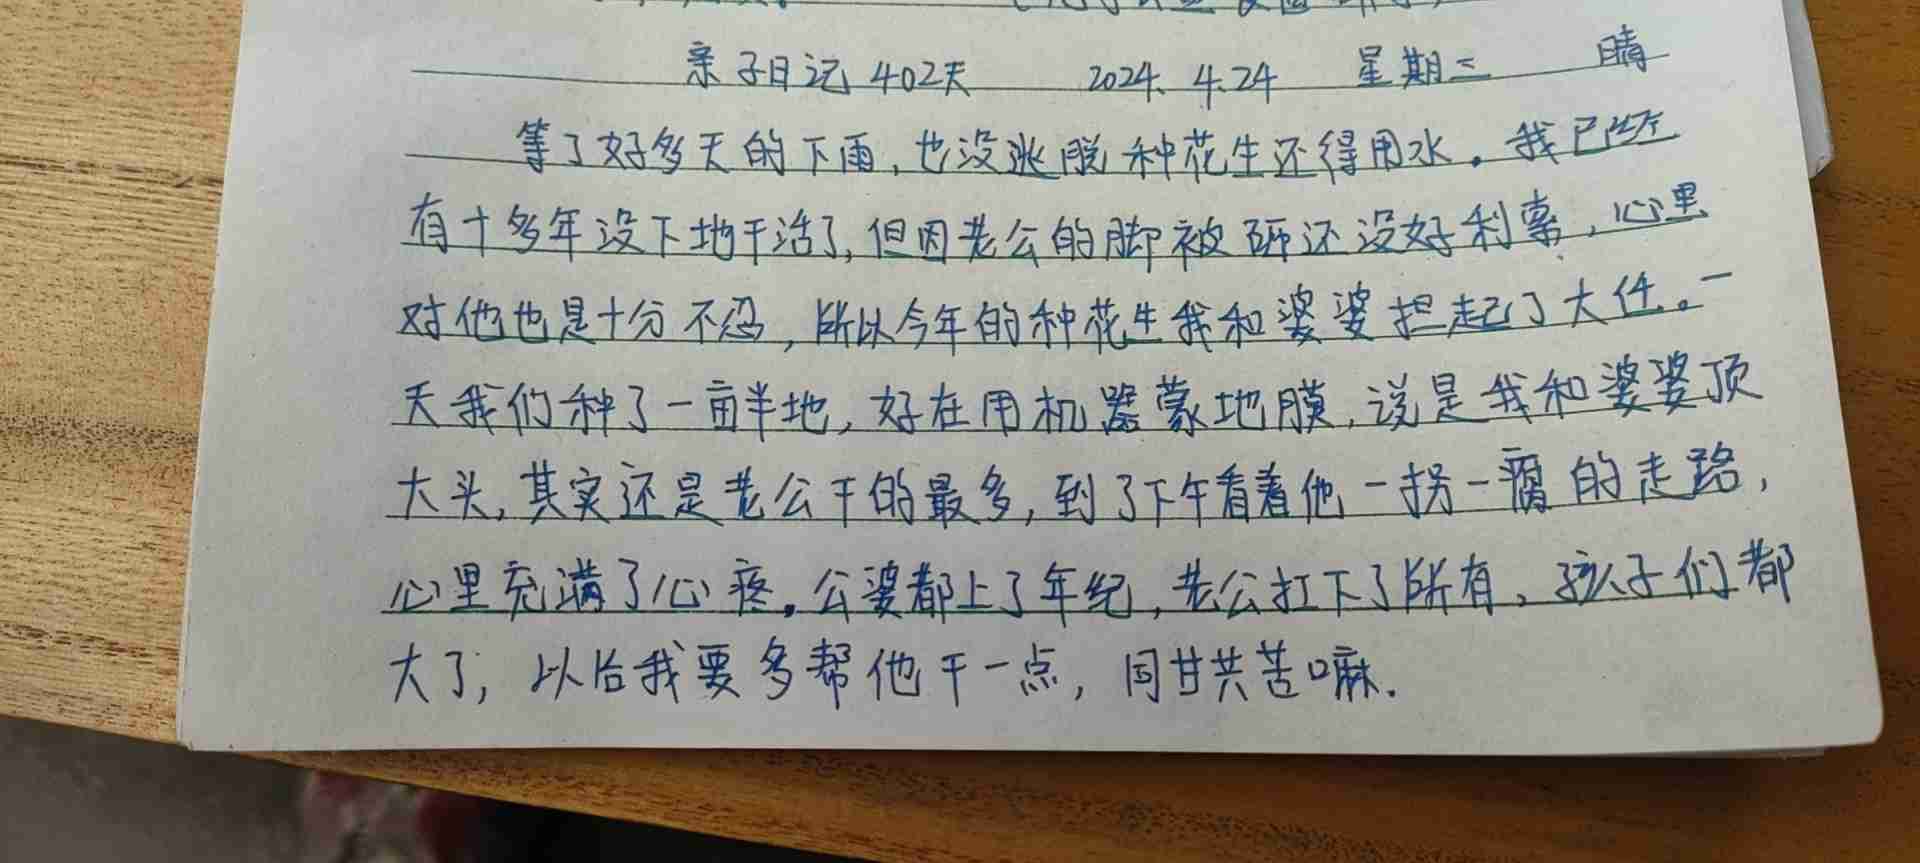 亲子日记402天 2024.4.24 星期三 晴
等了好多天的下雨,也没逃脱种花生还得用水。我已经
有十多年没下地干活了,但因老公的脚被砸还没好利索,心里
对他也是十分不忍,所以今年的种花生我和婆婆担起了大任。一
天我们种了一亩半地,好在用机器蒙地膜,说是我和婆婆顶
大头,其实还是老公干的最多,到了下午看着他一拐一瘸的走路,
心里充满了心疼。公婆都上了年纪,老公扛下了所有,孩子们都
大了,以后我要多帮他干一点,同甘共苦嘛.